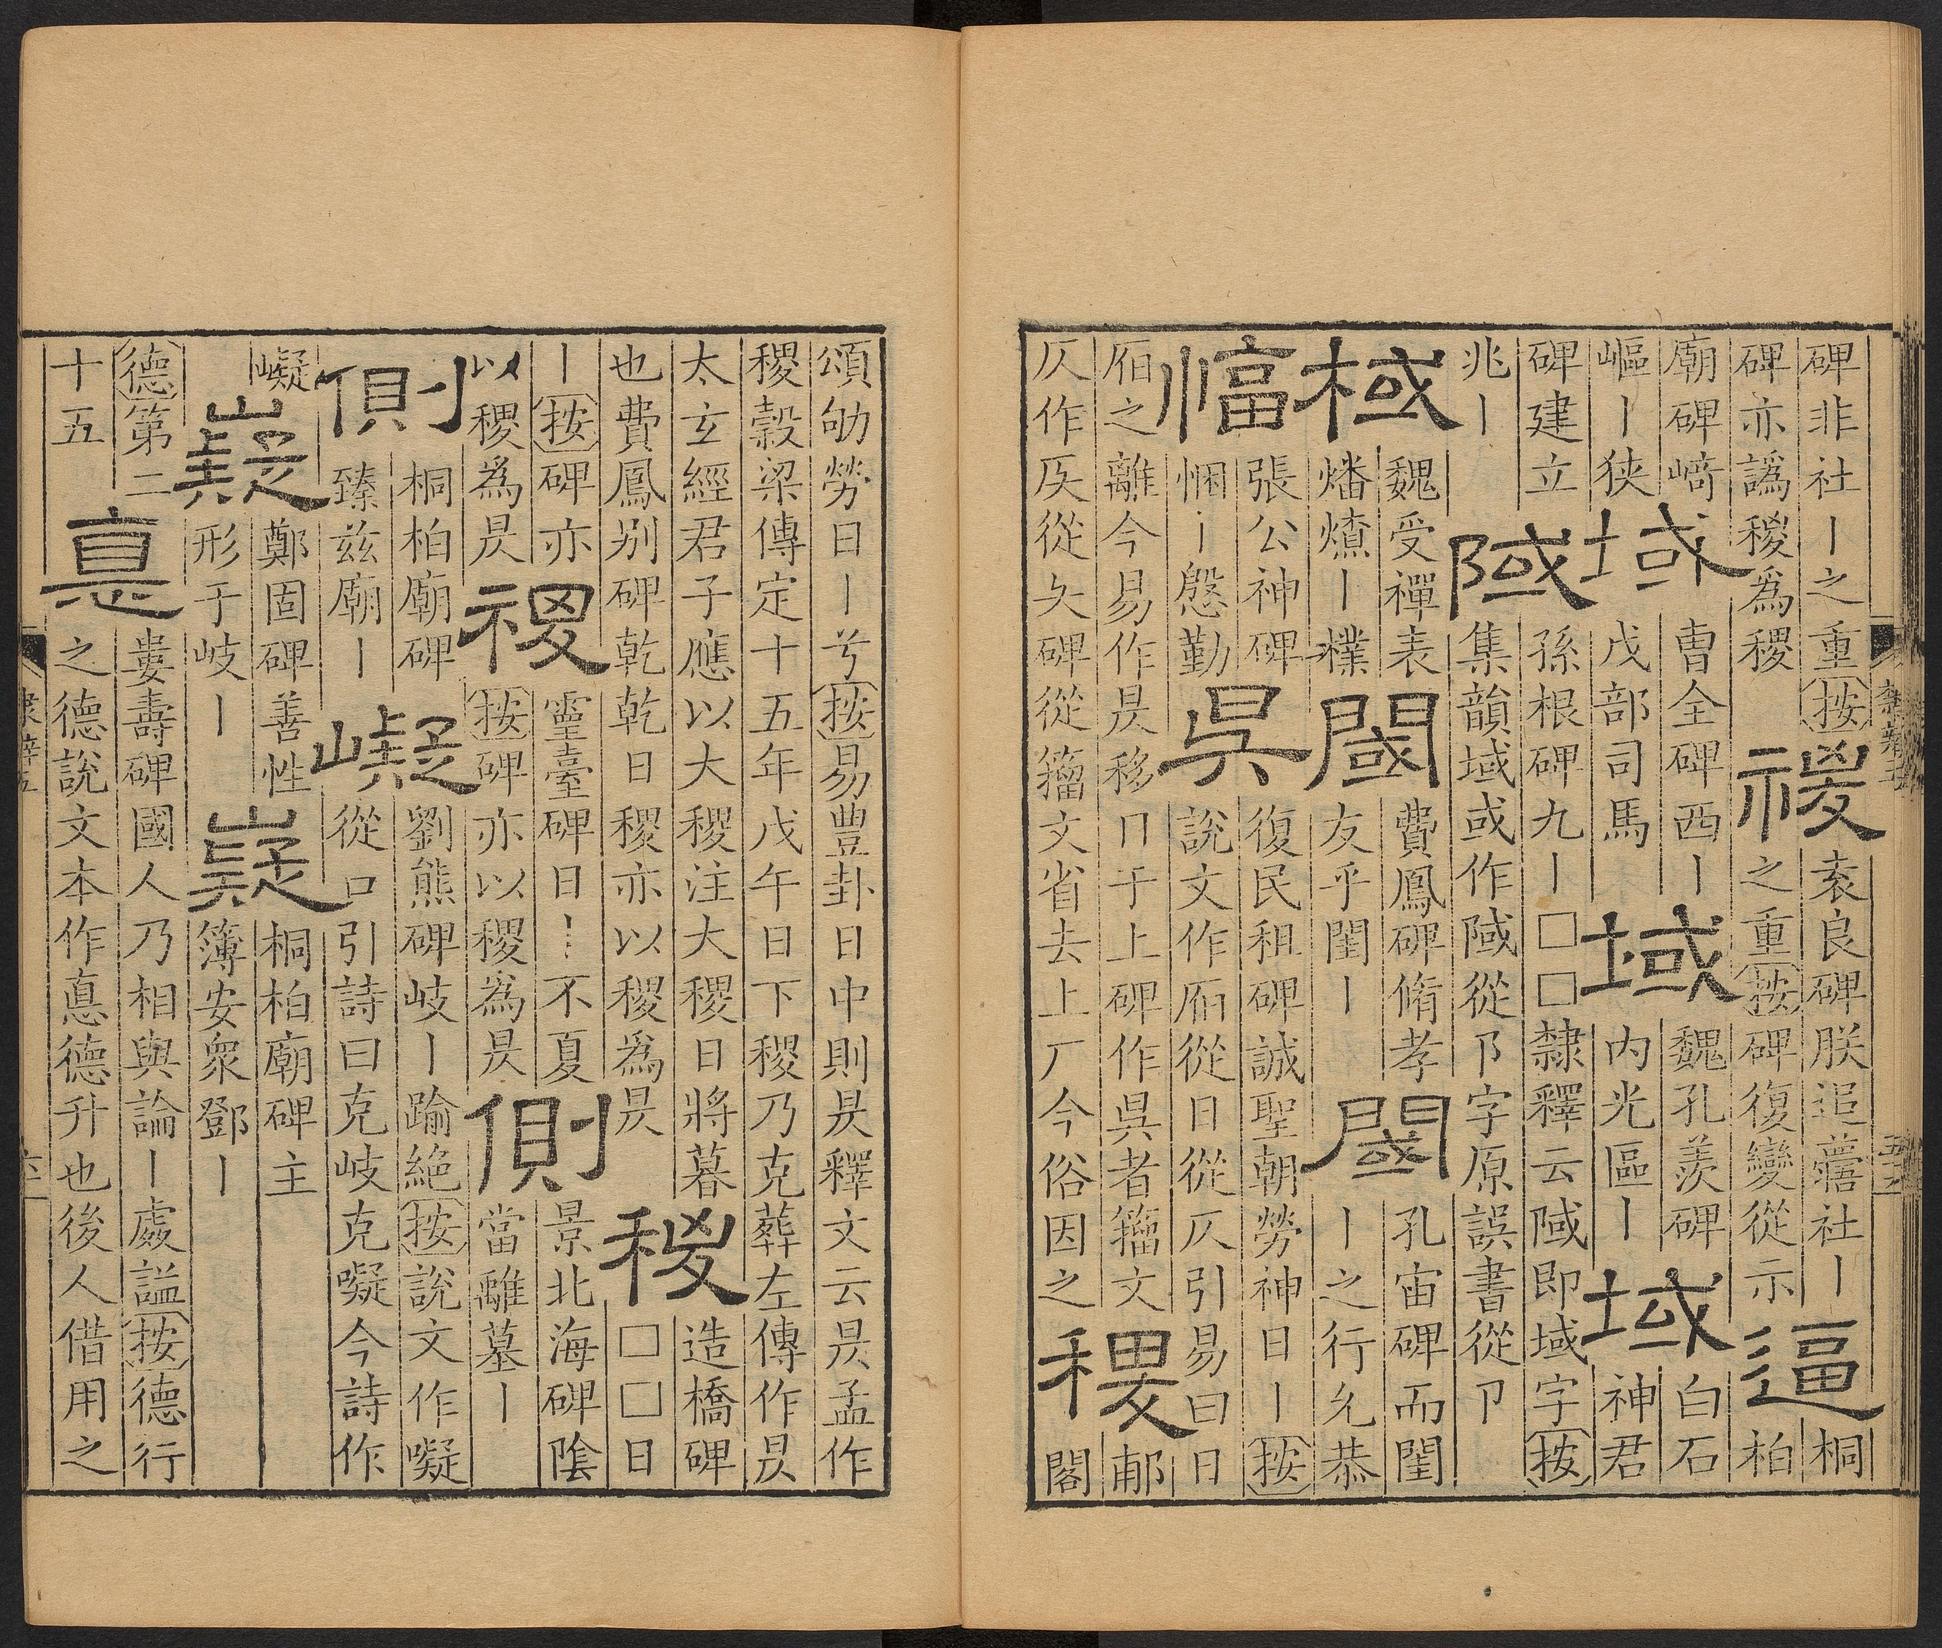 碑非社丨之重按
碑亦譌稷為稷
禝
袁良碑朕追蘁社丨
之重按碑復變從示
逼
桐
柏
廟碑﨑
嶇丨狹
域
曹全碑西丨
戊部司馬
域
魏孔羨碑
内光區丨
域
白石
神君
碑建立
兆丨
䧕
孫根碑九丨□□隸釋云䧕即域字按
集韻域或作䧕從阝字原誤書從卩
棫
魏受禪表
燔燎丨樸
閾
費鳳碑脩孝
友乎閨丨
閾
孔宙碑而閨
丨之行允恭
愊
張公神碑
悃丨慇勤
吳
復民租碑誠聖朝勞神日丨按
說文作㫹從日從仄引易曰日
㫹之離今易作昃移于上碑作吳者籀文
仄作從夨碑從籀文省去上厂今俗因之
稷
郙
閣
頌劬勞日丨兮按易豐卦日中則昃釋文云昃孟作
稷穀梁傳定十五年戊午日下稷乃克葬左傳作昃
太玄經君子應以大稷注大稷日將暮
也費鳳别碑乾乾日稷亦以稷為昃
稷
造橋碑
□□日
丨按碑亦
以稷為昃
禝
靈臺碑日丨不夏
按碑亦以稷為昃
側
景北海碑陰
當離墓丨
側
桐柏廟碑
臻兹廟丨
嶷
劉熊碑岐丨踰絶按說文作㘈
從口引詩曰克岐克㘈今詩作
嶷
嶷
鄭固碑善性
形于岐丨
嶷
桐柏廟碑主
簿安衆鄧丨
德第二
十五
悳
婁壽碑國人乃相與論丨處謚按德行
之德說文本作悳德升也後人借用之
隸辨五